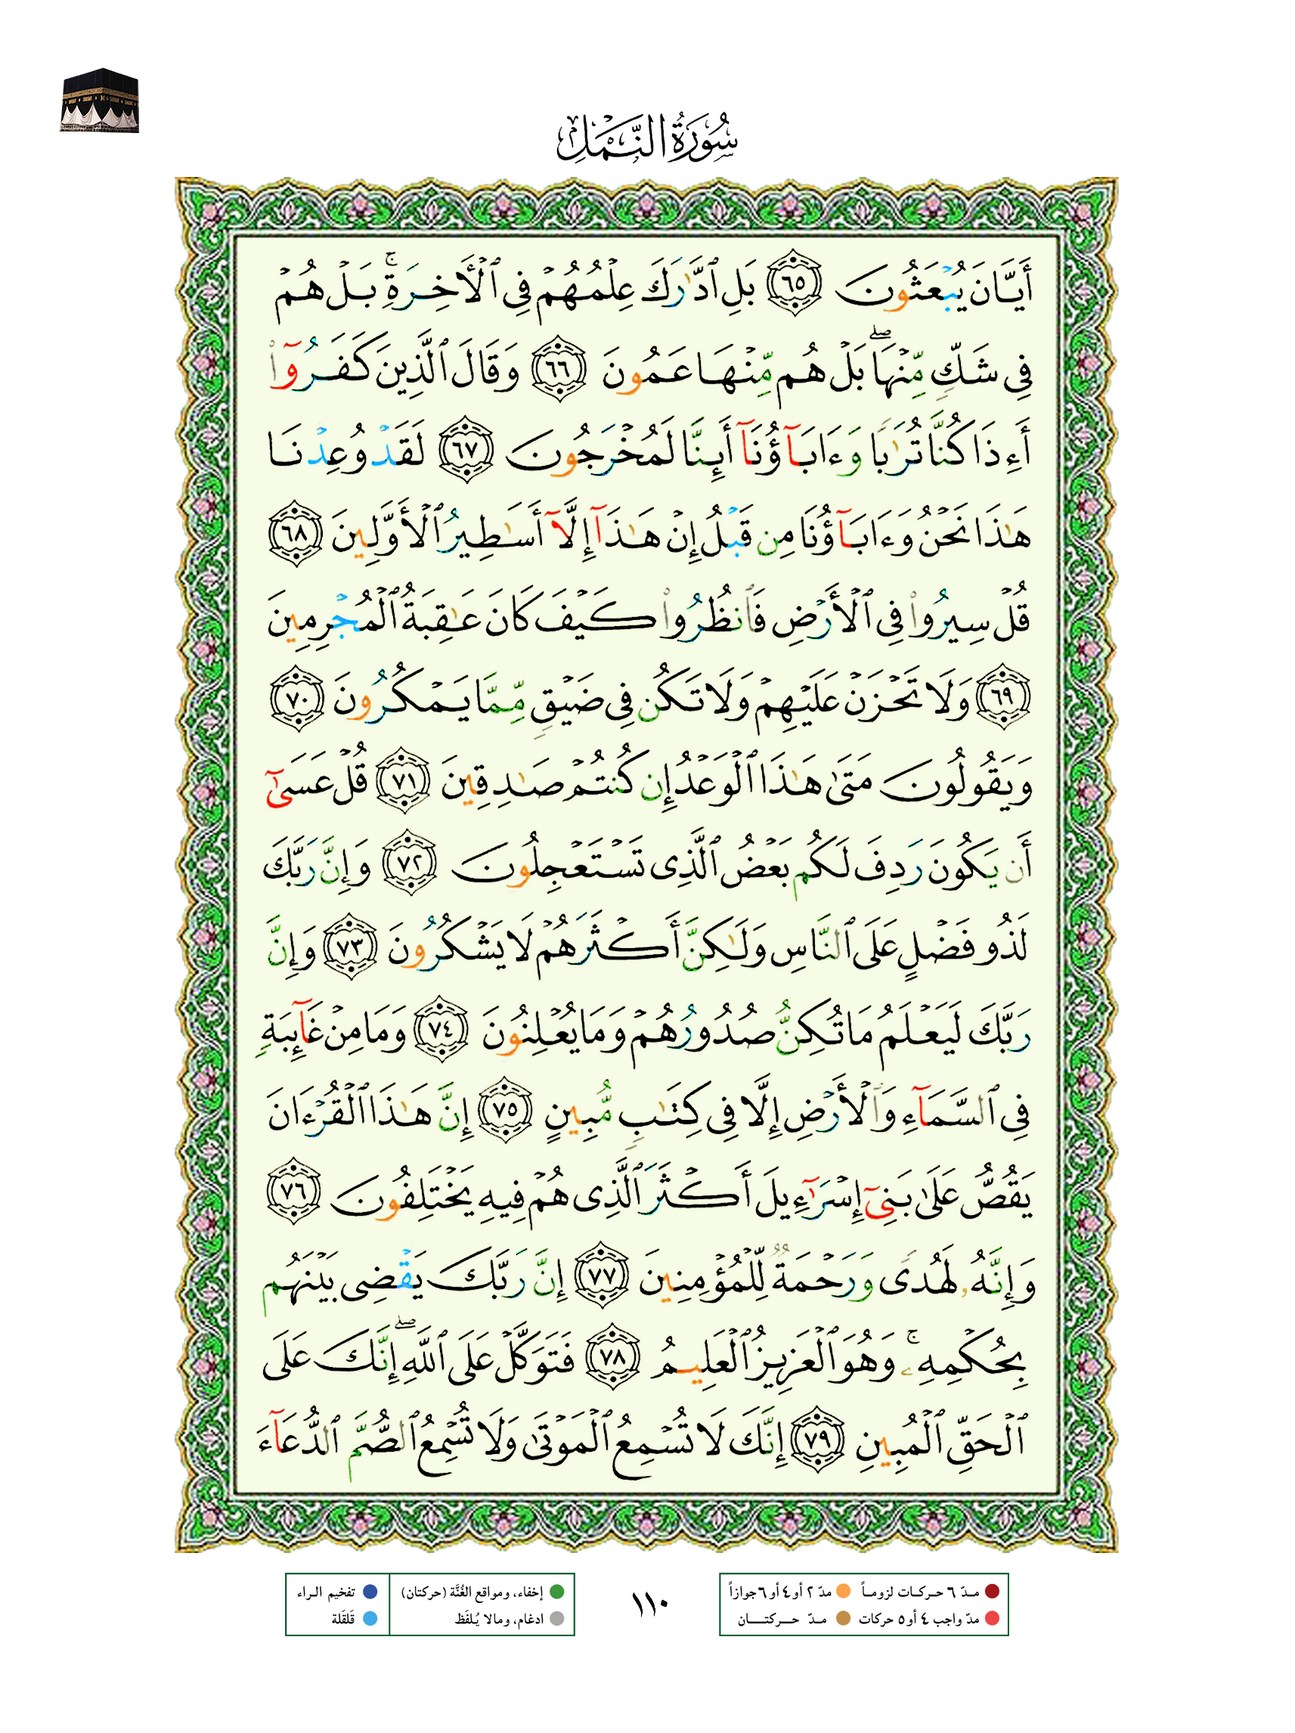 سُورَةُ النَّمْلِ
أَيَّانَ يُبْعَثُونَ ﴿٦٥﴾ بَلِ ٱدَّٰرَكَ عِلْمُهُمْ فِى ٱلْأَخِرَةِۚ بَلْ هُمْ
فِى شَكٍّ مِّنْهَاۖ بَلْ هُم مِّنْهَا عَمُونَ ﴿٦٦﴾ وَقَالَ ٱلَّذِينَ كَفَرُوٓا۟
أَءِذَا كُنَّا تُرَٰبًا وَءَابَآؤُنَآ أَئِنَّا لَمُخْرَجُونَ ﴿٦٧﴾ لَقَدْ وُعِدْنَا
هَٰذَا نَحْنُ وَءَابَآؤُنَا مِن قَبْلُ إِنْ هَٰذَآ إِلَّآ أَسَٰطِيرُ ٱلْأَوَّلِينَ ﴿٦٨﴾
قُلْ سِيرُوا۟ فِى ٱلْأَرْضِ فَٱنظُرُوا۟ كَيْفَ كَانَ عَٰقِبَةُ ٱلْمُجْرِمِينَ
﴿٦٩﴾ وَلَا تَحْزَنْ عَلَيْهِمْ وَلَا تَكُن فِى ضَيْقٍ مِّمَّا يَمْكُرُونَ ﴿٧٠﴾
وَيَقُولُونَ مَتَىٰ هَٰذَا ٱلْوَعْدُ إِن كُنتُمْ صَٰدِقِينَ ﴿٧١﴾ قُلْ عَسَىٰٓ
أَن يَكُونَ رَدِفَ لَكُم بَعْضُ ٱلَّذِى تَسْتَعْجِلُونَ ﴿٧٢﴾ وَإِنَّ رَبَّكَ
لَذُو فَضْلٍ عَلَى ٱلنَّاسِ وَلَٰكِنَّ أَكْثَرَهُمْ لَا يَشْكُرُونَ ﴿٧٣﴾ وَإِنَّ
رَبَّكَ لَيَعْلَمُ مَا تُكِنُّ صُدُورُهُمْ وَمَا يُعْلِنُونَ ﴿٧٤﴾ وَمَا مِنْ غَآئِبَةٍ
فِى ٱلسَّمَآءِ وَٱلْأَرْضِ إِلَّا فِى كِتَٰبٍ مُّبِينٍ ﴿٧٥﴾ إِنَّ هَٰذَا ٱلْقُرْءَانَ
يَقُصُّ عَلَىٰ بَنِىٓ إِسْرَٰٓءِيلَ أَكْثَرَ ٱلَّذِى هُمْ فِيهِ يَخْتَلِفُونَ ﴿٧٦﴾
وَإِنَّهُۥ لَهُدًى وَرَحْمَةٌ لِّلْمُؤْمِنِينَ ﴿٧٧﴾ إِنَّ رَبَّكَ يَقْضِى بَيْنَهُم
بِحُكْمِهِۦۚ وَهُوَ ٱلْعَزِيزُ ٱلْعَلِيمُ ﴿٧٨﴾ فَتَوَكَّلْ عَلَى ٱللَّهِۖ إِنَّكَ عَلَى
ٱلْحَقِّ ٱلْمُبِينِ ﴿٧٩﴾ إِنَّكَ لَا تُسْمِعُ ٱلْمَوْتَىٰ وَلَا تُسْمِعُ ٱلصُّمَّ ٱلدُّعَآءَ
مـدّ ٦ حركـات لزومـاً مدّ ٢ أو ٤ أو ٦ جوازاً
مدّ واجب ٤ أو ٥ حركات مـدّ حـــركتـــان
١١٠
إخفاء، ومواقع الغُنَّة (حركتان) تفخيم الراء
ادغام، ومالا يُلفَظ قلقلة